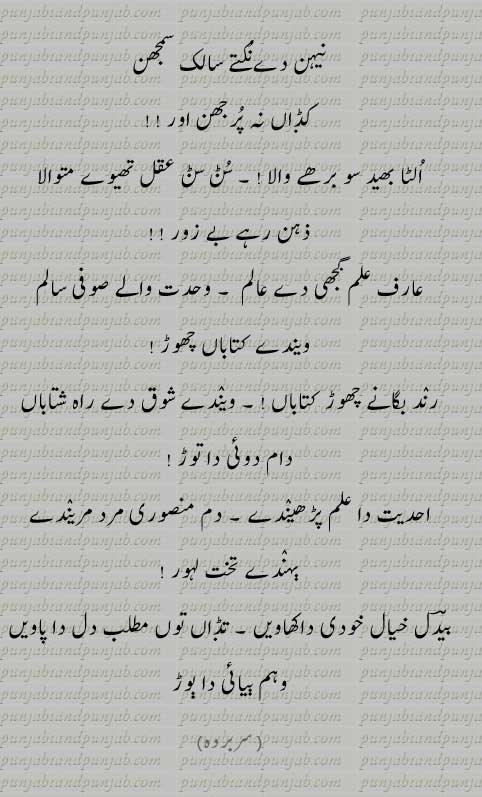 نیہن دے نُکتے سالک سمجھن
کڈاں نہ پُرجھن اور !!
اُلٹا بھید سو برھے والا ! ۔ سُݨ سݨ عقل تھیوے متوالا
ذہن رہے بے زور !!
عارف علم گجھی دے عالم ۔ وحدت والے صوفی سالم
ویندے کتاباں چھوڑ !
رند بگانے چھوڑ کتاباں ! ۔ ویندے شوق دے راہ شتاباں
دام دوئی دا توڑ !
احدیت دا علم پڑھیندے ۔ دم منصوری مرد مریندے
ٻہندے تخت لہور !
بیدؔل خیال خودی دا کھاویں ۔ تڈاں توں مطلب دل دا پاویں
وہم ٻیائی دا ٻوڑ
(سربردہ)
punjabiandpunjab.com